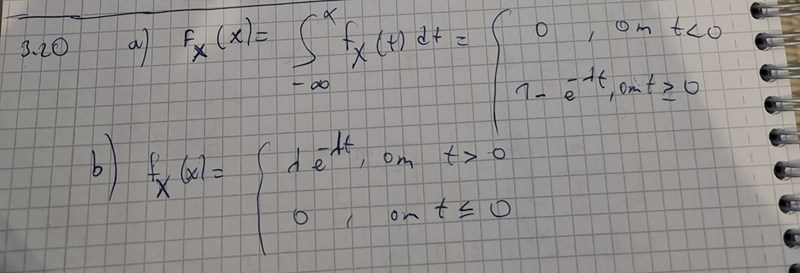 3.20 a) F_X(x) = ∫_{-∞}^{x} f_X(t) dt = { 0 , om t<0
1 - e^{-λt}, om t ≥ 0
b) f_X(x) = { λ e^{-λt}, om t > 0
0 , om t ≤ 0